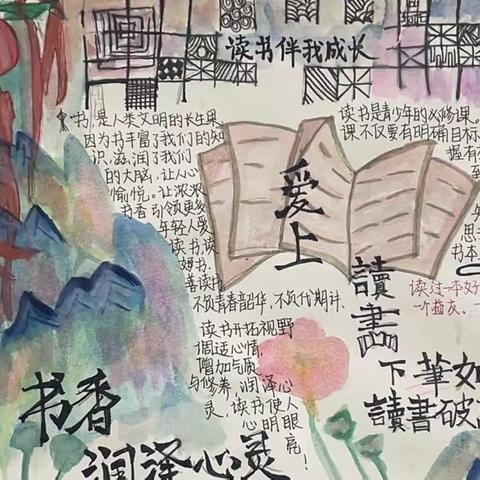 读书伴我成长
书,是人类文明的长生果。
因为书丰富了我们的知
识,滋润了我们
的大脑,让人心
愉悦,让浓浓
书香引领更多
年轻人爱
读书,读
好书,
善读书,
不负青春韶华,不负代期计。
读书开拓视野
调适心情,
增加气质
与修养,润泽心
灵,读书使人
心明眼
亮!
爱上
讀書
读书是青少年的必修课。
课不仅要有明确目标
握有
到
思
书本
读过一本好
一个益友、一
下筆如
讀書破
书香
润泽心灵